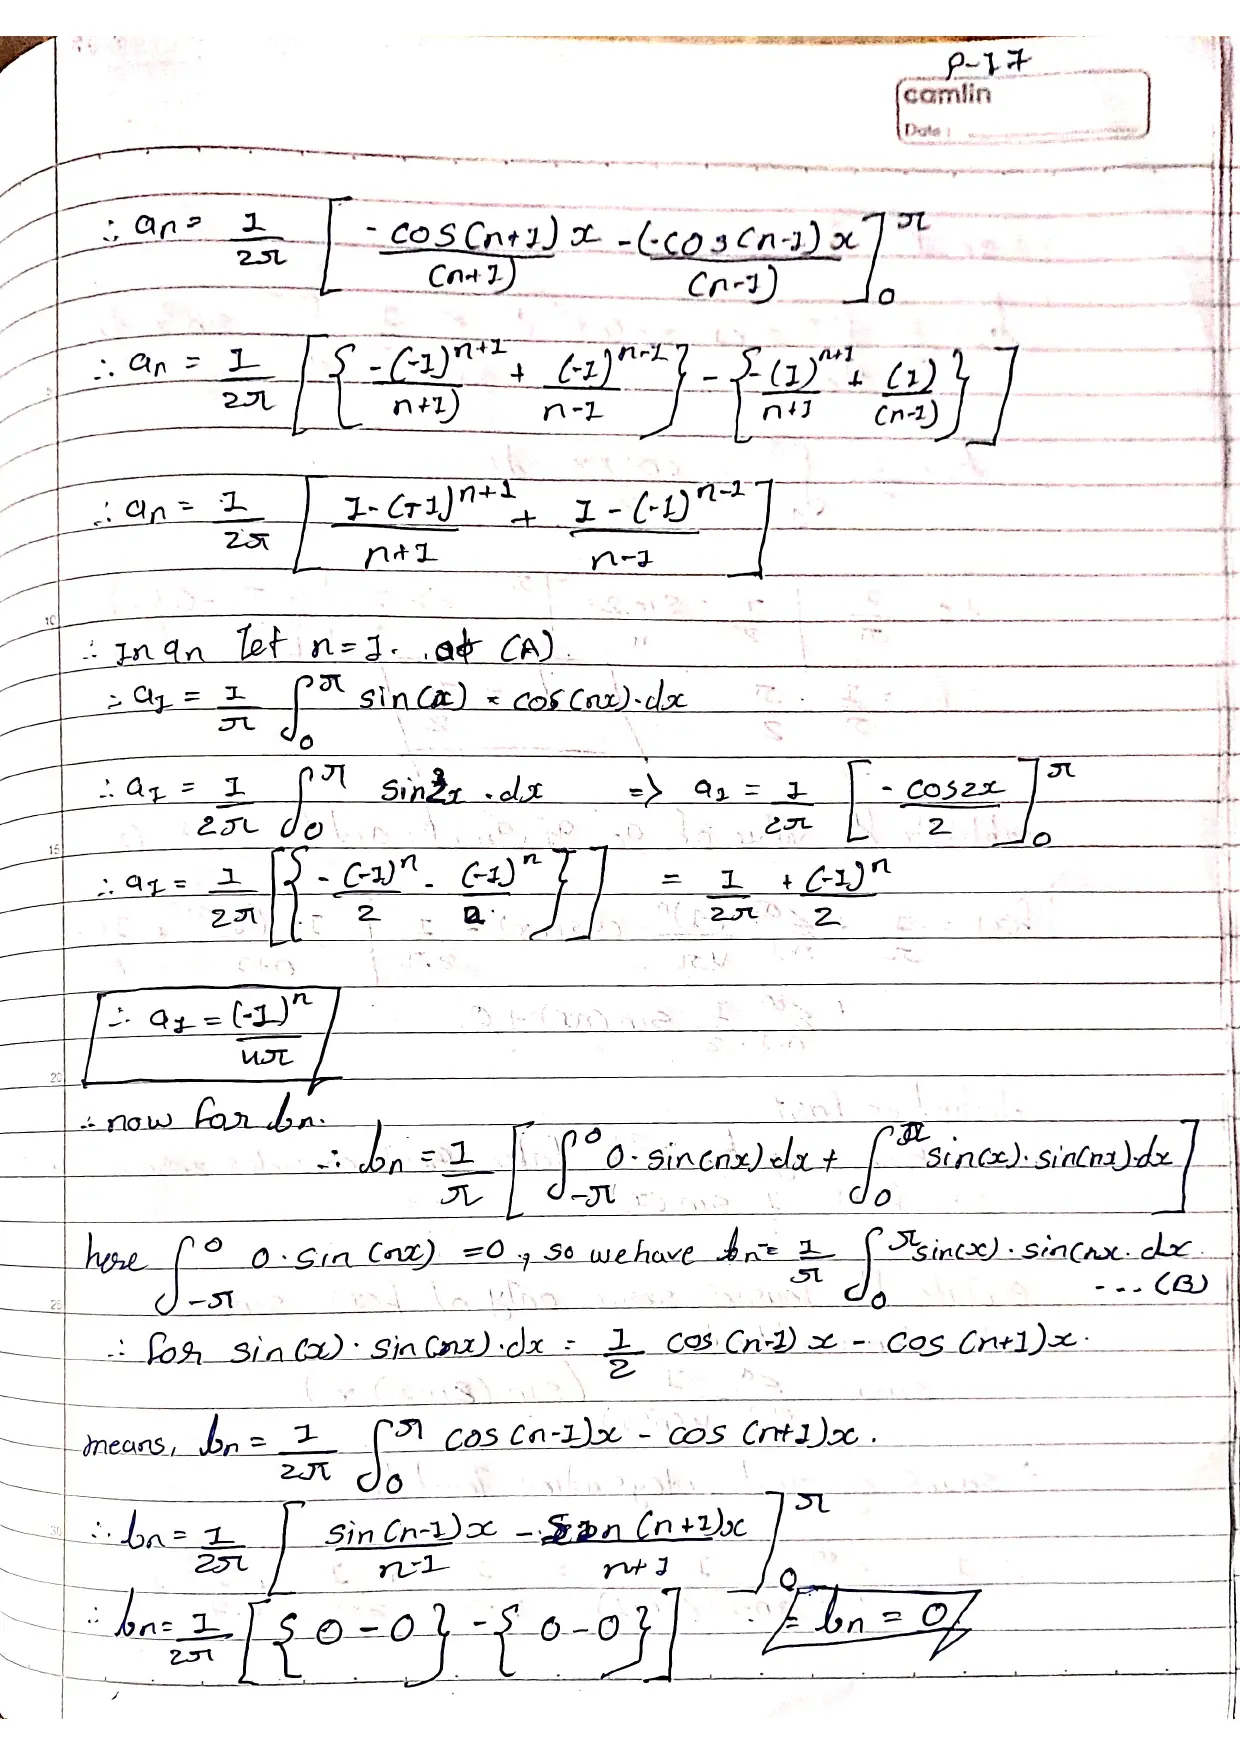 P-17
camlin
Date :
∴ an = 1/2π [ -cos(n+1)x/(n+1) - (-cos(n-1)x/(n-1) ]₀^π
∴ an = 1/2π [ { -(-1)^n+1/n+1) + (-1)^n-1/n-1 } - { -(1)^n+1/n+1 + (1)/(n-1) } ]
∴ an = 1/2π [ 1-(-1)^n+1/n+1 + 1-(-1)^n-1/n-1 ]
10
∴ In an let n=1. at (A).
∴ a1 = 1/π ∫₀^π sin(x) * cos(nx).dx
∴ a1 = 1/2π ∫₀^π sin2x .dx => a1 = 1/2π [ -cos2x/2 ]₀^π
15
∴ a1 = 1/2π [ { -(-1)^n/2 - (-1)^n/2 } ] = 1/2π + (-1)^n/2
∴ a1 = (-1)^n/4π
20
∴ now for bn.
∴ bn = 1/π [ ∫₋π^0 0.sin(nx).dx + ∫₀^π sin(x).sin(nx).dx ]
here ∫₋π^0 0.sin(nx) =0, so we have bn = 1/π ∫₀^π sin(x).sin(nx.dx. ... (B)
25
∴ for sin(x).sin(nx).dx = 1/2 cos(n-1)x - cos(n+1)x.
means, bn = 1/2π ∫₀^π cos(n-1)x - cos(n+1)x.
30
∴ bn = 1/2π [ sin(n-1)x/n-1 - sin(n+1)x/n+1 ]₀^π
∴ bn = 1/2π [ {0-0} - {0-0} ] = bn = 0